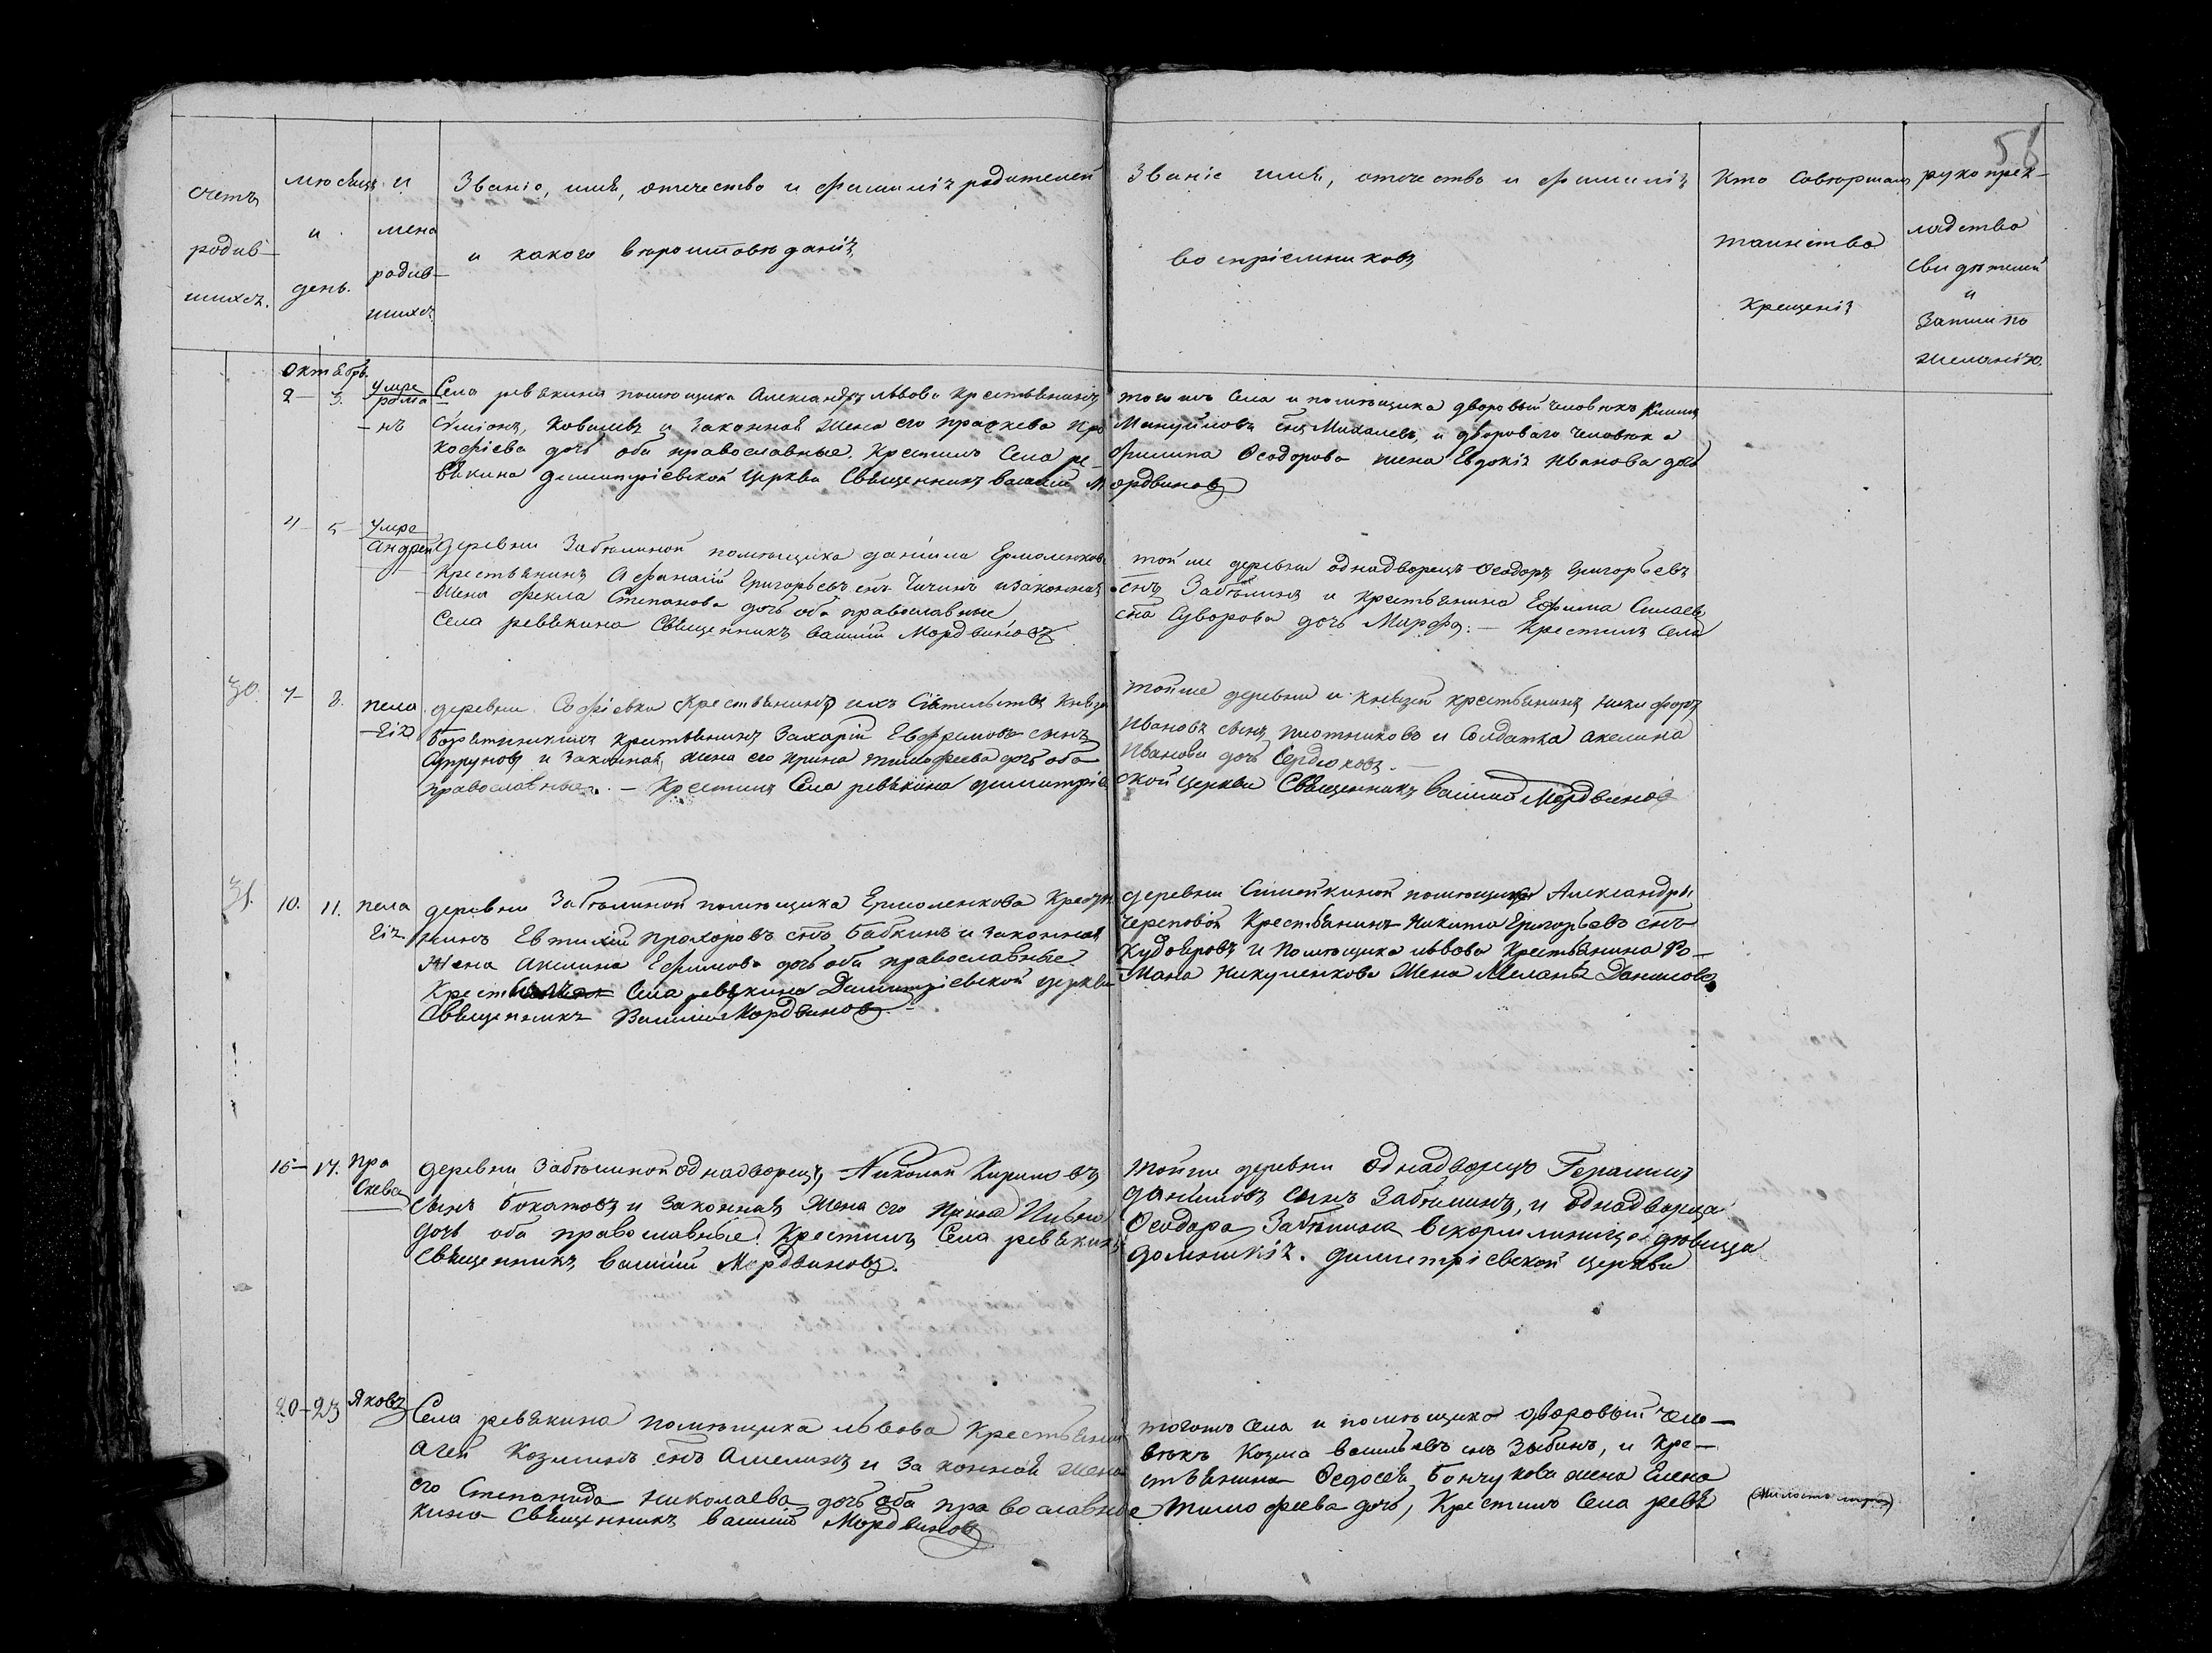 56
Счетъ
родив-
шихся.
месяцъ
и
день.
и
мена
родив-
шихся
Званіе, имя, отечество и фамилія родителей
и какого вероисповеданія
Званіе имя, отечество и фамилія
воспріемниковъ
Кто Совершалъ
таинство
крещенія
рукоприк-
ладство
Свидетелей
и
записи по
желанію.
Октябрь.
2 3. умре
Рома
нъ
Села ревякина помещика Александра Львова крестьянинъ
Симіонъ Ковалевъ и законная жена его праскева про
кофіева дочь оба православные. Крестилъ Села ре-
вякина димитріевской церкви Священникъ василій М
тогожъ Села и помещика дворовый человекъ
Мануйловъ снъ Михалевъ, и двороваго человека
филипа Феодорова жена Евдокія Иванова дочь
ордвиновъ
4 5 умре
Андрей
Деревни Забелиной помещика даніила Ермоленкова
крестьянинъ Афанасій Григорьевъ снъ Чичинъ и законная
жена фекла Степанова дочь оба православные
Села ревякина Священникъ василій Мордвиновъ
той же деревни однадворецъ Феодоръ Григорьевъ
снъ Забелинъ и крестьянина Ефима Силаева
сна Суворова дочь Марфа. — Крестилъ Села
30. 7 8. пела
гія
деревни Софіевки крестьянинъ ихъ Сіятельства Князей
Борятинскихъ крестьянинъ Захарій Евфримовъ сынъ
Супруновъ и законная жена его ирина тимофеева дочь оба
православные. — Крестилъ Села ревякина димитріев
тойже деревни и князей крестьянинъ Никифоръ
Ивановъ сынъ плотниковъ и Солдатка акелина
Иванова дочь Сердюковъ. —
ской церкви Священникъ василій Мордвиновъ
31. 10. 11. пела
гія
деревни Забелиной помещика Ермоленкова Крестья
нинъ Евтихій Прохоровъ снъ Бабкинъ и законная
жена Акелина Ефимова дочь оба православные
Крест Села ревякина Димитріевской церкви
Священникъ Василій Мордвиновъ. —
деревни помещицы Александры
Череповой Крестьянинъ Никита Григорьевъ снъ
Кудояровъ и Помещика львова Крестьянина Ро-
мана Никуленкова Жена Меланья Данилова
16— 17. Пра
скева
деревни Забелиной однадворецъ Николай Кириловъ
сынъ Бокатовъ и законная жена его Ирина
дочь оба православные. Крестилъ Села ревякина
Священникъ василій Мордвиновъ.
тойже деревни однадворецъ Герасимъ
даниловъ сынъ Забелинъ, и однадворца
Феодора Забелина вскормлиница девица
домникія. димитріевской церкви
20—23 Яковъ
Села ревякина помещика львова Крестьянинъ
Агей Козминъ снъ Амелинъ и законная жена
его Степанида Николаева дочь оба православны
кина Священникъ василій Мордвиновъ
тогожъ Села и помещика дворовый чело-
векъ Козма васильевъ снъ Зыбинъ, и кре-
стьянина Федосея Бончукова жена Елена
е тимофеева дочь, Крестилъ Села ревя